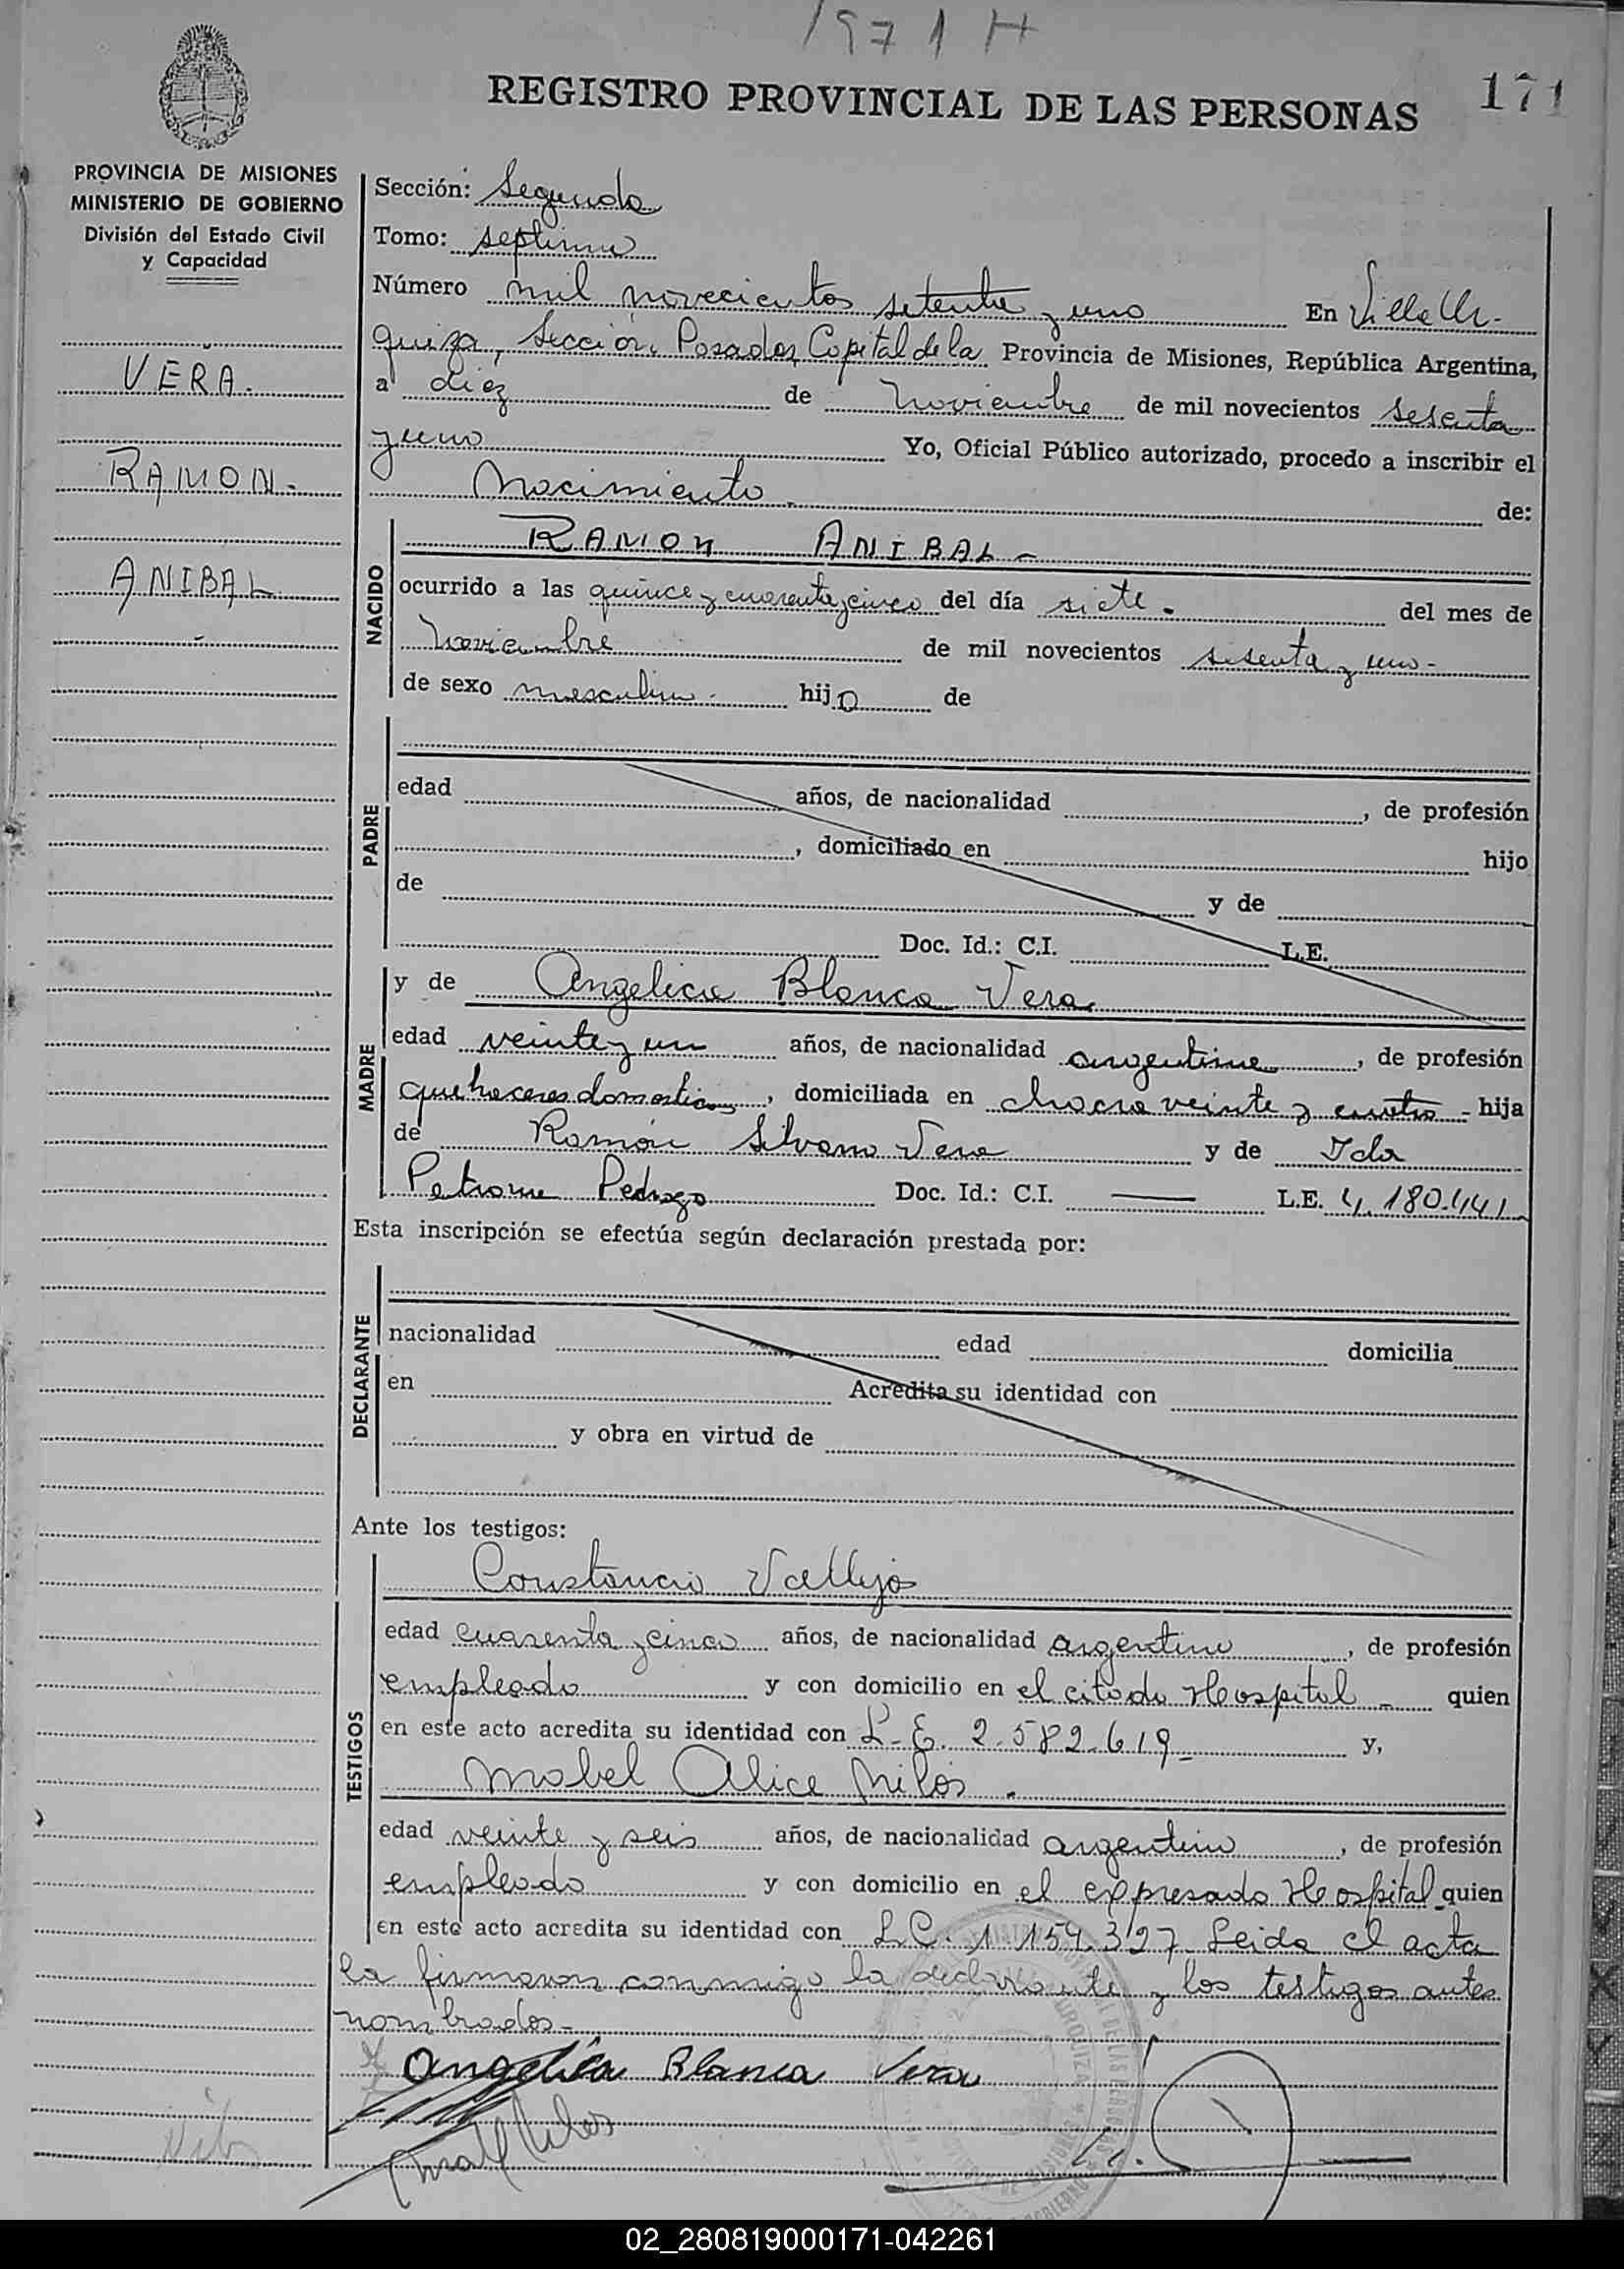 1971 H
REGISTRO PROVINCIAL DE LAS PERSONAS
171
PROVINCIA DE MISIONES
MINISTERIO DE GOBIERNO
División del Estado Civil
y Capacidad
VERA.
RAMON.-
ANIBAL
Sección: Segunda
Tomo: septimo
Número mil novecientos setenta y uno En Villa Ur-
quiza, Sección, Posadas, Capital de la Provincia de Misiones, República Argentina,
a diez de Noviembre de mil novecientos sesenta
y uno Yo, Oficial Público autorizado, procedo a inscribir el
Nacimiento de:
NACIDO
RAMON ANIBAL-
ocurrido a las quince y cuarenta y cinco del día siete. del mes de
Noviembre de mil novecientos sesenta y uno-
de sexo masculino. hijo de
PADRE
edad años, de nacionalidad , de profesión
, domiciliado en hijo
de y de
Doc. Id.: C.I. L.E.
MADRE
y de Angelica Blanca Vera
edad veinte y un años, de nacionalidad argentina , de profesión
quehaceres domesticos , domiciliada en chacra veinte y cuatro - hija
de Ramón Silvano Vera y de Ida
Petrona Pedrozo Doc. Id.: C.I. —— L.E. 4.180.441
Esta inscripción se efectúa según declaración prestada por:
DECLARANTE
nacionalidad edad domicilia
en Acredita su identidad con
y obra en virtud de
Ante los testigos:
TESTIGOS
Constancio Vallejos
edad cuarenta y cinco años, de nacionalidad argentino , de profesión
empleado y con domicilio en el citado Hospital - quien
en este acto acredita su identidad con L.E. 2.582.619- y,
Mabel Alice Milos.
edad veinte y seis años, de nacionalidad argentino , de profesión
empleado y con domicilio en el expresado Hospital quien
en este acto acredita su identidad con L.C. 1.154.327 Leida el acta
la firmaron conmigo la declarante y los testigos antes
nombrados-
Angelica Blanca Vera
02_280819000171-042261